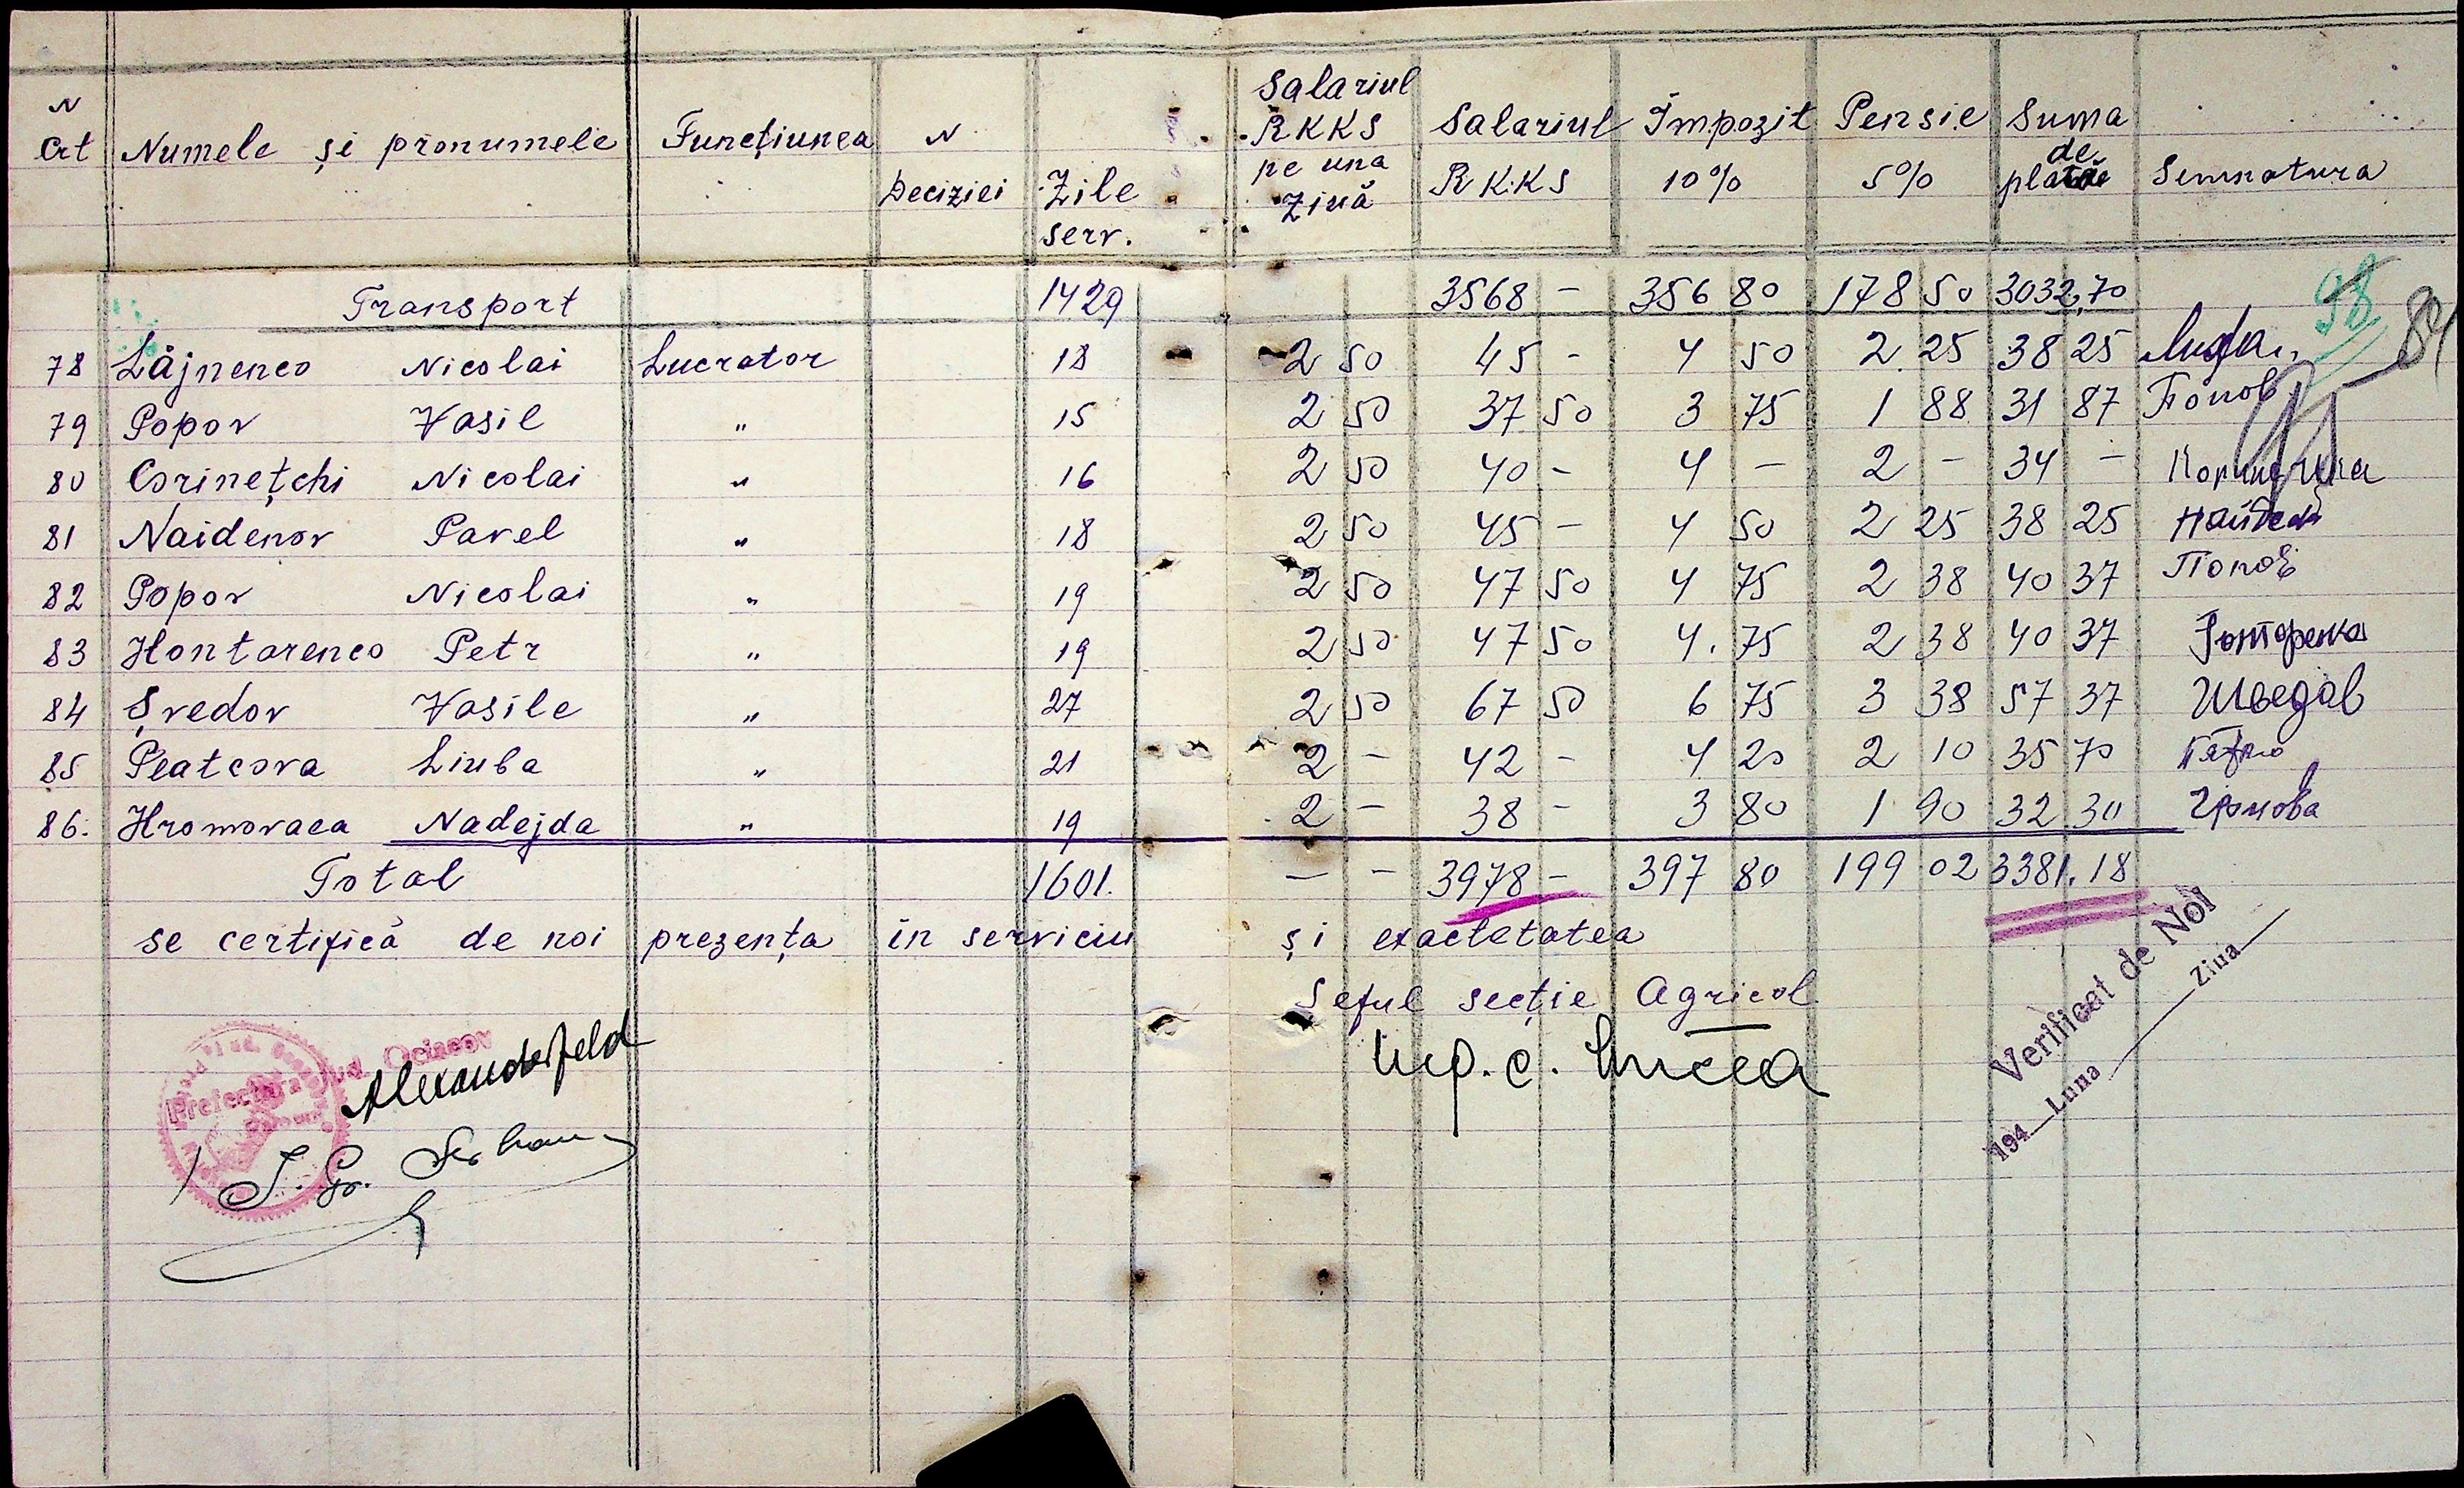 N Crt Numele și pronumele Funcțiunea N Deciziei Zile serv. Salariul RKKS pe una Ziuă Salariul RKKS Împozit 10% Pensie 5% Suma de plată Semnatura
98
84
Transport 1429 3568 - 356 80 178 50 3032,70
78 Lăjnenco Nicolai Lucrator 18 2 50 45 - 4 50 2.25 38 25
79 Popov Vasil " 15 2 50 37 50 3 75 1 88 31 87 Попов
80 Corinețchi Nicolai " 16 2 50 40 - 4 - 2 - 34 -
81 Naidenov Pavel " 18 2 50 45 - 4 50 2 25 38 25 Найден
82 Popov Nicolai " 19 2 50 47 50 4 75 2 38 40 37 Попов
83 Hontarenco Petr " 19 2 50 47 50 4.75 2 38 40 37
84 Șvedov Vasile " 27 2 50 67 50 6 75 3 38 57 37 Шведов
85 Peatcova Liuba " 21 2 - 42 - 4 20 2 10 35 70
86. Hromovaea Nadejda " 19 2 - 38 - 3 80 1 90 32 30
Total 1601. - - 3978 - 397 80 199 02 3381.18
se certifică de noi prezența în serviciu și exactetatea
Șeful secție Agricol
Verificat de Noi
194 Luna Ziua
Prefectura Jud. Oceacov
Alexanderfeld